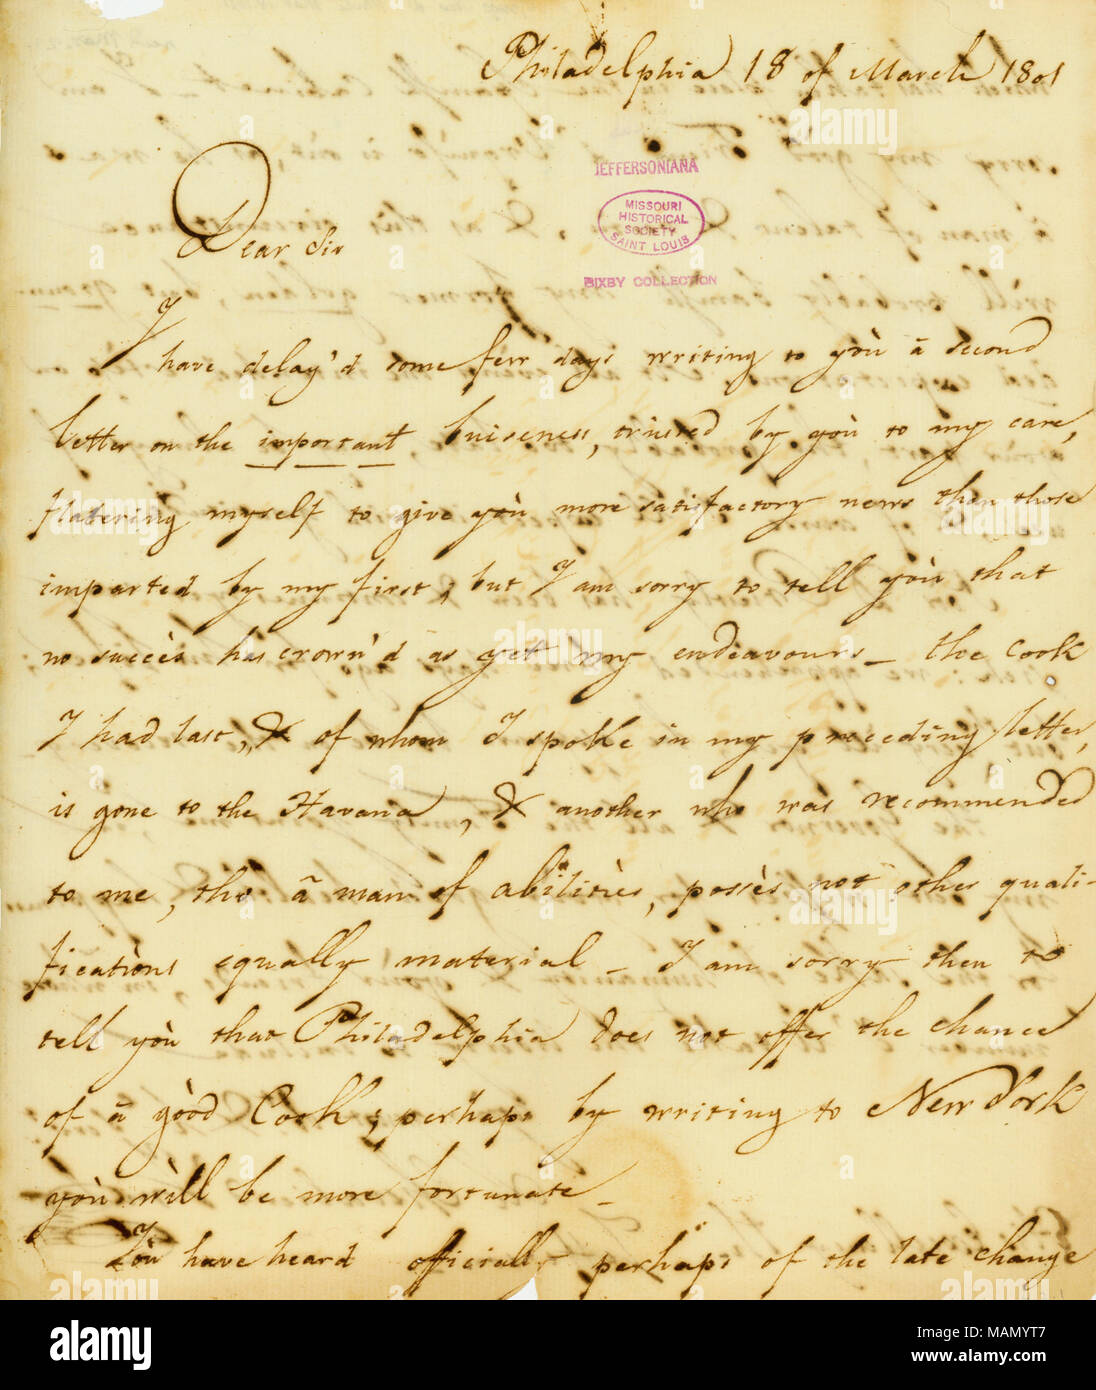 Philadelphia 18 of March 1801
JEFFERSONIANA
MISSOURI
HISTORICAL
SOCIETY
SAINT LOUIS
BIXBY COLLECTION
Dear Sir
I have delay'd some few days writing to yoù à second
letter on the important buiseness, trusted by yoù to my care,
flatering myself to give yoù more satisfactory news than those
imparted by my first, but I am sorry to tell yoù that
no succès has crown'd as yet my endeavours_ the cook
I had last, & of whom I spoke in my preceeding letter,
is gone to the Havana, & another who was recommended
to me, tho' à man of abilitiès, possès not other quali-
ficatìons equally material_ I am sorry then to
tell yoù that Philadelphia does not offer the chance
of à gòod Cook; perhaps by writing to New York
yoù wìll be more fortunate_
Yoù have heard officially perhaps of the late change
alamy
Image ID: MAMYT7
www.alamy.com